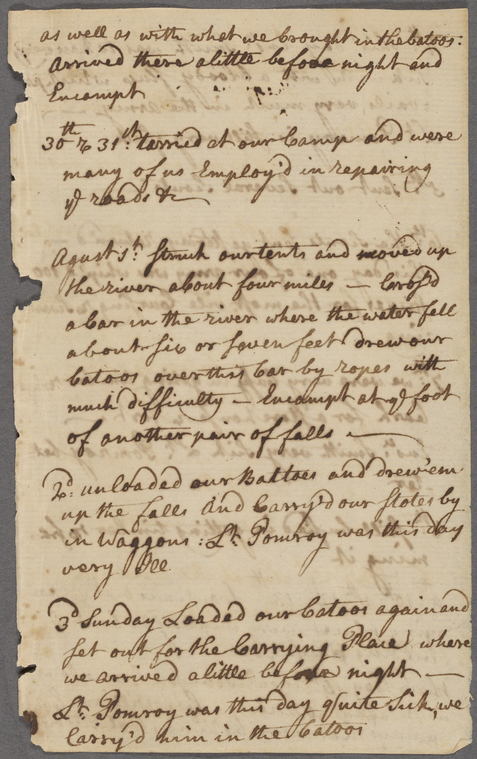 as well as with what we brought in the batoos:
arrived there a little before night and
Encampt
30th & 31st: tarried at our Camp and were
many of us Employ'd in repairing
ye roads &c
Agust 1st Struck our tents and moved up
the river about four miles — Cross'd
a bar in the river where the water fell
about six or seven feet drew our
batoos over this bar by ropes with
much difficulty — Encampt at ye foot
of another pair of falls —
2d: unloaded our Battoes and drew 'em
up the falls and Carry'd our Stoles by
in Waggons: Lt. Pomroy was this day
very Ill
3d Sunday Loaded our batoos again and
set out for the Carrying Place where
we arrived a little before night —
Lt. Pomroy was this day quite Sick, we
Carry'd him in the batoos